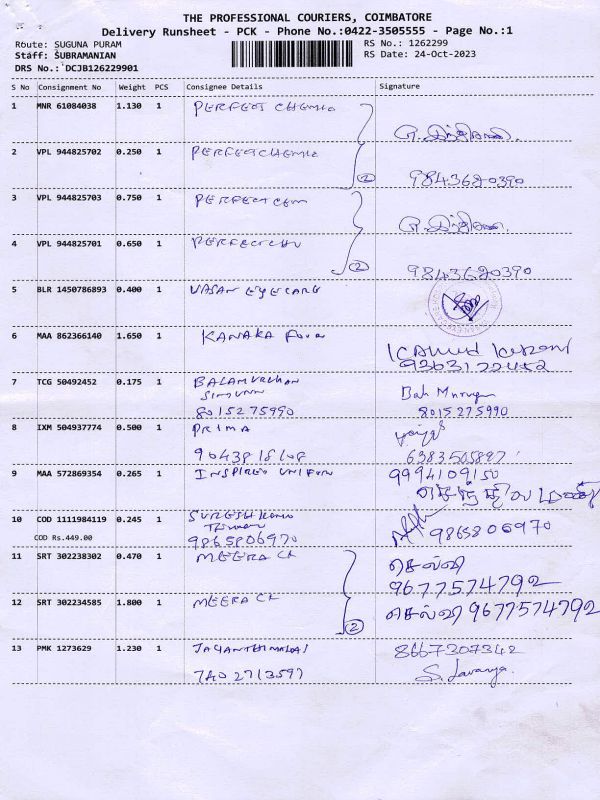 THE PROFESSIONAL COURIERS, COIMBATORE
Delivery Runsheet - PCK - Phone No.:0422-3505555 - Page No.:1
Route: SUGUNA PURAM RS No.: 1262299
Staff: SUBRAMANIAN RS Date: 24-Oct-2023
DRS No.: DCJB126229901
S No Consignment No Weight PCS Consignee Details Signature
1 MNR 61084038 1.130 1 PERFECT CHEMIC
2 VPL 944825702 0.250 1 PERFECTCHEMIC
2 9843620390
3 VPL 944825703 0.750 1 PERFECTCEM
4 VPL 944825701 0.650 1 PERFECTCHU
2 9843620390
5 BLR 1450786893 0.400 1 VASAN EYECARE
6 MAA 862366140 1.650 1 KANAKA
9363122452
7 TCG 50492452 0.175 1 BALAMURUGAN Bala Murugan
8015275990 8015275990
8 IXM 504937774 0.500 1 PRIMA
6383505897
9 MAA 572869354 0.265 1 INSPIRED UNIFON 9994109150
10 COD 1111984119 0.245 1 SURESHKUMAR
COD Rs.449.00 9865806970 9865806970
11 SRT 302238302 0.470 1 MEERA CK செல்வி
9677574792
12 SRT 302234585 1.800 1 MEERA CK செல்வி 9677574792
2
13 PMK 1273629 1.230 1 JAYANTHIMALAI 8667307342
7402713597 S. Lavanya.